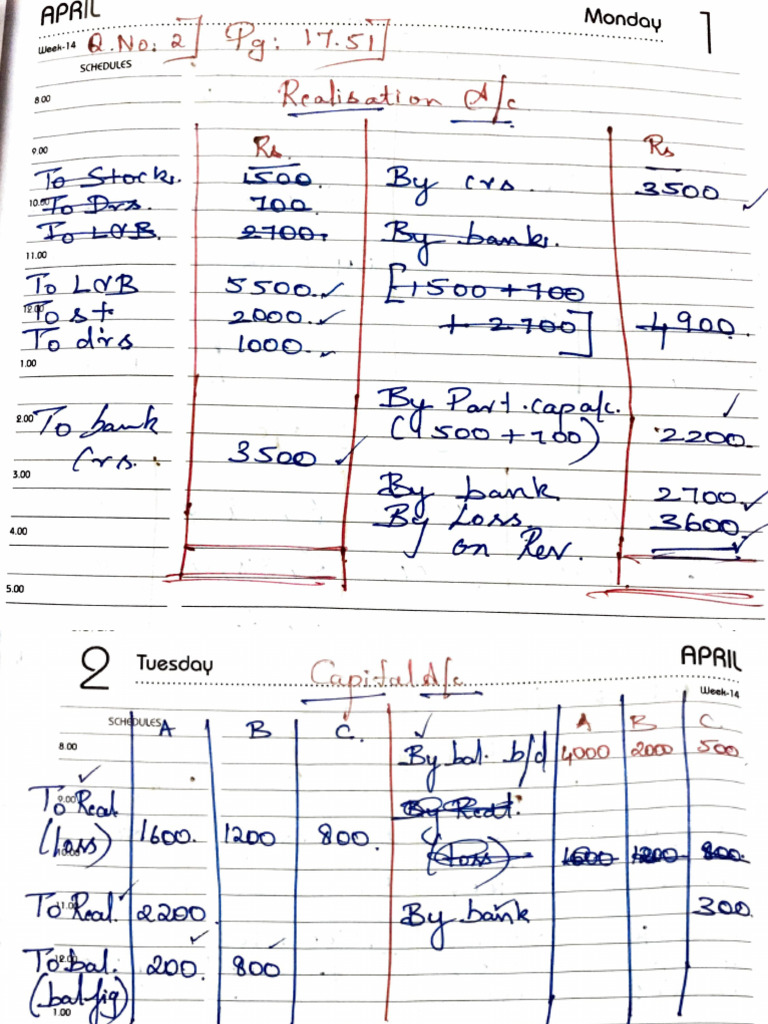 APRIL Monday 1
Week-14 Q.No: 2] Pg: 17.51]
SCHEDULES
8.00 Realisation A/c
9.00 Rs Rs
To Stock. 1500. By crs. 3500 ✓
10.00 To Drs. 700
To L&B. 2700. By bank.
11.00
To L&B 5500 ✓ [1500 + 700
12.00 To st 2000 ✓ + 2700] 4900
To drs 1000 ✓
1.00
By Part. cap a/c. ✓
2.00 To bank (1500 + 700) 2200
Crs. 3500 ✓
3.00 By bank 2700 ✓
By Loss 3600 ✓
4.00 on Rev.
5.00
2 Tuesday Capital A/c APRIL
Week-14
SCHEDULES A B C. ✓ A B C
8.00 By bal. b/d 4000 2000 500
✓
9.00 To Real By Real.
10.00 (loss) 1600. 1200 800. (Loss) 1600 1200 800.
11.00 To Real. ✓ 2200 By bank 300
12.00 To bal. 200 ✓ 800 ✓
(bal fig)
1.00